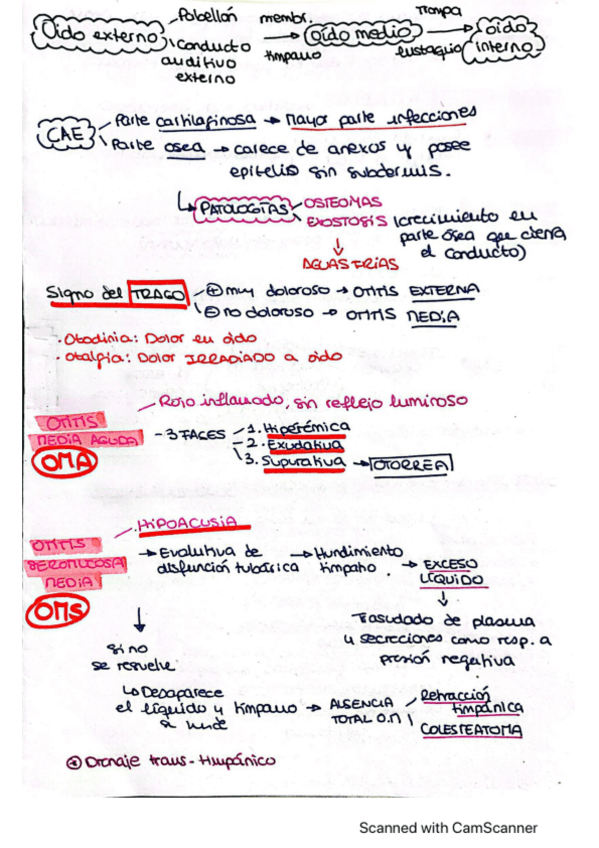 Pabellón membr. Trompa
Oído externo → oído medio → oído interno
Conducto auditivo externo
tímpano
eustaquio
CAE
Parte cartilaginosa → Mayor parte infecciones
Parte ósea → carece de anexos y posee
epitelio sin subdermis.
PATOLOGÍAS
OSTEOMAS
EXOSTOSIS (crecimiento en
parte ósea que cierra
el conducto)
↓
AGUAS FRÍAS
Signo del TRAGO
⊕ muy doloroso → OTITIS EXTERNA
⊖ no doloroso → OTITIS MEDIA
· Otodinia: Dolor en oído
· otalgia: Dolor IRRADIADO a oído
Rojo inflamado, sin reflejo luminoso
OTITIS
MEDIA AGUDA
OMA
- 3 FASES
1. Hiperémica
2. Exudativa
3. Supurativa → OTORREA
. HIPOACUSIA
OTITIS
SEROMUCOSA
MEDIA
OMS
→ Evolutiva de
disfunción tubárica
→ Hundimiento
tímpano
→ EXCESO
LÍQUIDO
↓
Trasudado de plasma
y secreciones como resp. a
presión negativa
↓
Si no
se resuelve
↳ Desaparece
el líquido y tímpano
se hunde
→ AUSENCIA
TOTAL O.M
Retracción
timpánica
COLESTEATOMA
Drenaje trans-timpánico
Scanned with CamScanner